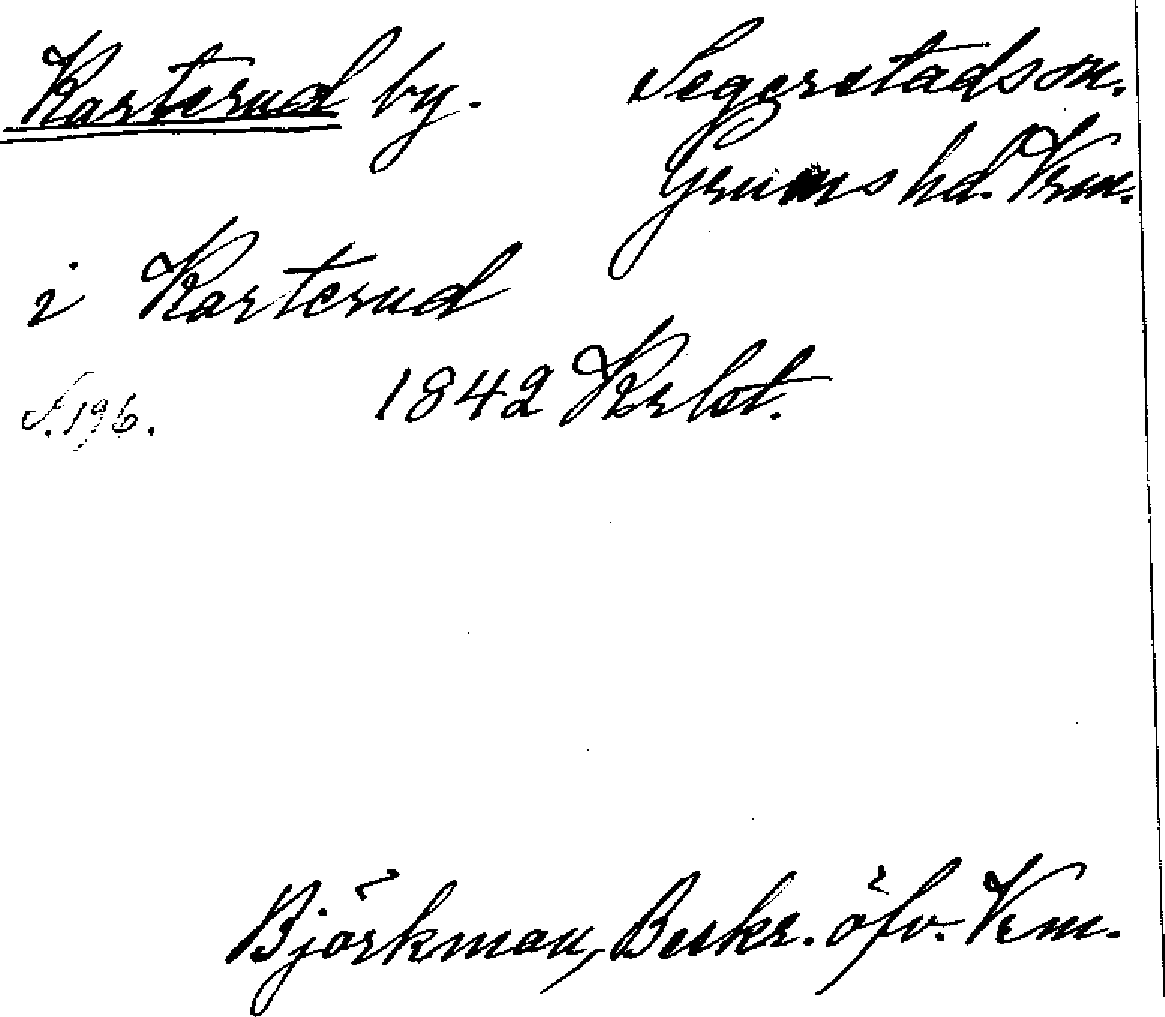 Karterud by. Segerstad sn.
Grums hd. Vrm.
i Karterud
S. 196. 1842
Björkman, Beskr. öfv. Vrm.